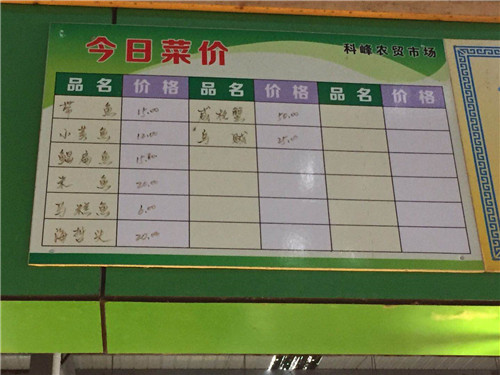 今日菜价 科峰农贸市场
品名 价格 品名 价格 品名 价格
带鱼 15.00 50.00
小黄鱼 10.00 乌贼 25.00
鲳扁鱼 15.00
米鱼 20.00
马鲛鱼
海蜇头 20.00